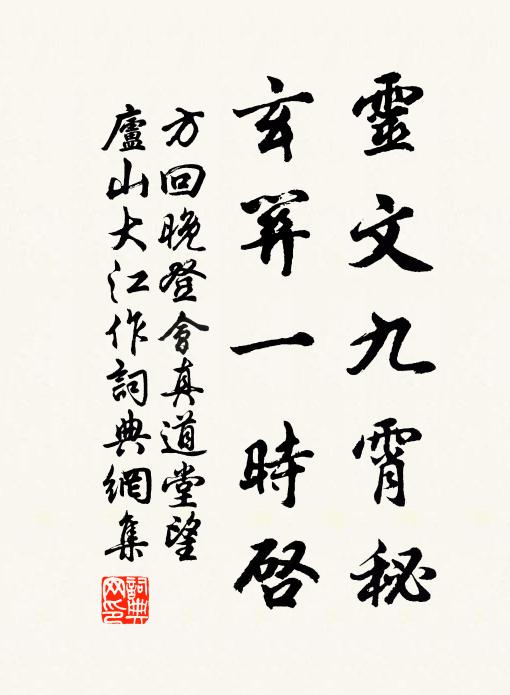 靈文九霄秘
玄笄一時啓
方回晚登會真道堂望
廬山大江作詞典網集
詞典
网印